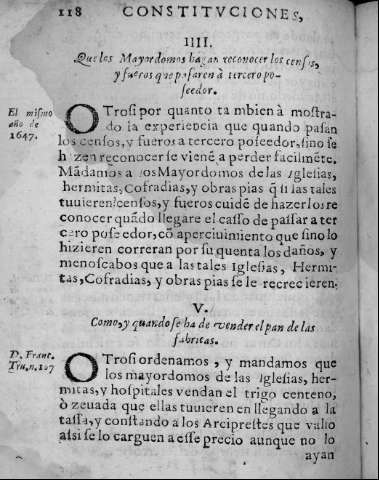 118 CONSTITVCIONES,
IIII.
Que los Mayordomos hagan reconocer los censos,
y fueros que pasaren à tercero po-
seedor.
El mismo
año de
1647.
OTrosi por quanto tambien à mostra-
do la experiencia que quando pasan
los censos, y fueros a tercero poseedor, sino se
hazen reconocer se vienē a perder facilmēte.
Mādamos a los Mayordomos de las Iglesias,
hermitas, Cofradias, y obras pias q̄ si las tales
tuuieren censos, y fueros cuidē de hazerlos re
conocer quādo llegare el casso de passar a ter
cero poseedor, cō aperciuimiento que sino lo
hizieren correran por su quenta los daños, y
menoscabos que a las tales Iglesias, Hermi-
tas, Cofradias, y obras pias se le recrecieren.
V.
Como, y quando se ha de vender el pan de las
fabricas.
D. Franc.
Tru, n. 107
OTrosi ordenamos, y mandamos que
los mayordomos de las Iglesias, her-
mitas, y hospitales vendan el trigo centeno,
ò zeuada que ellas tuuieren en llegando a la
tassa, y constando a los Arciprestes que valio
assi se lo carguen a esse precio aunque no lo
ayan